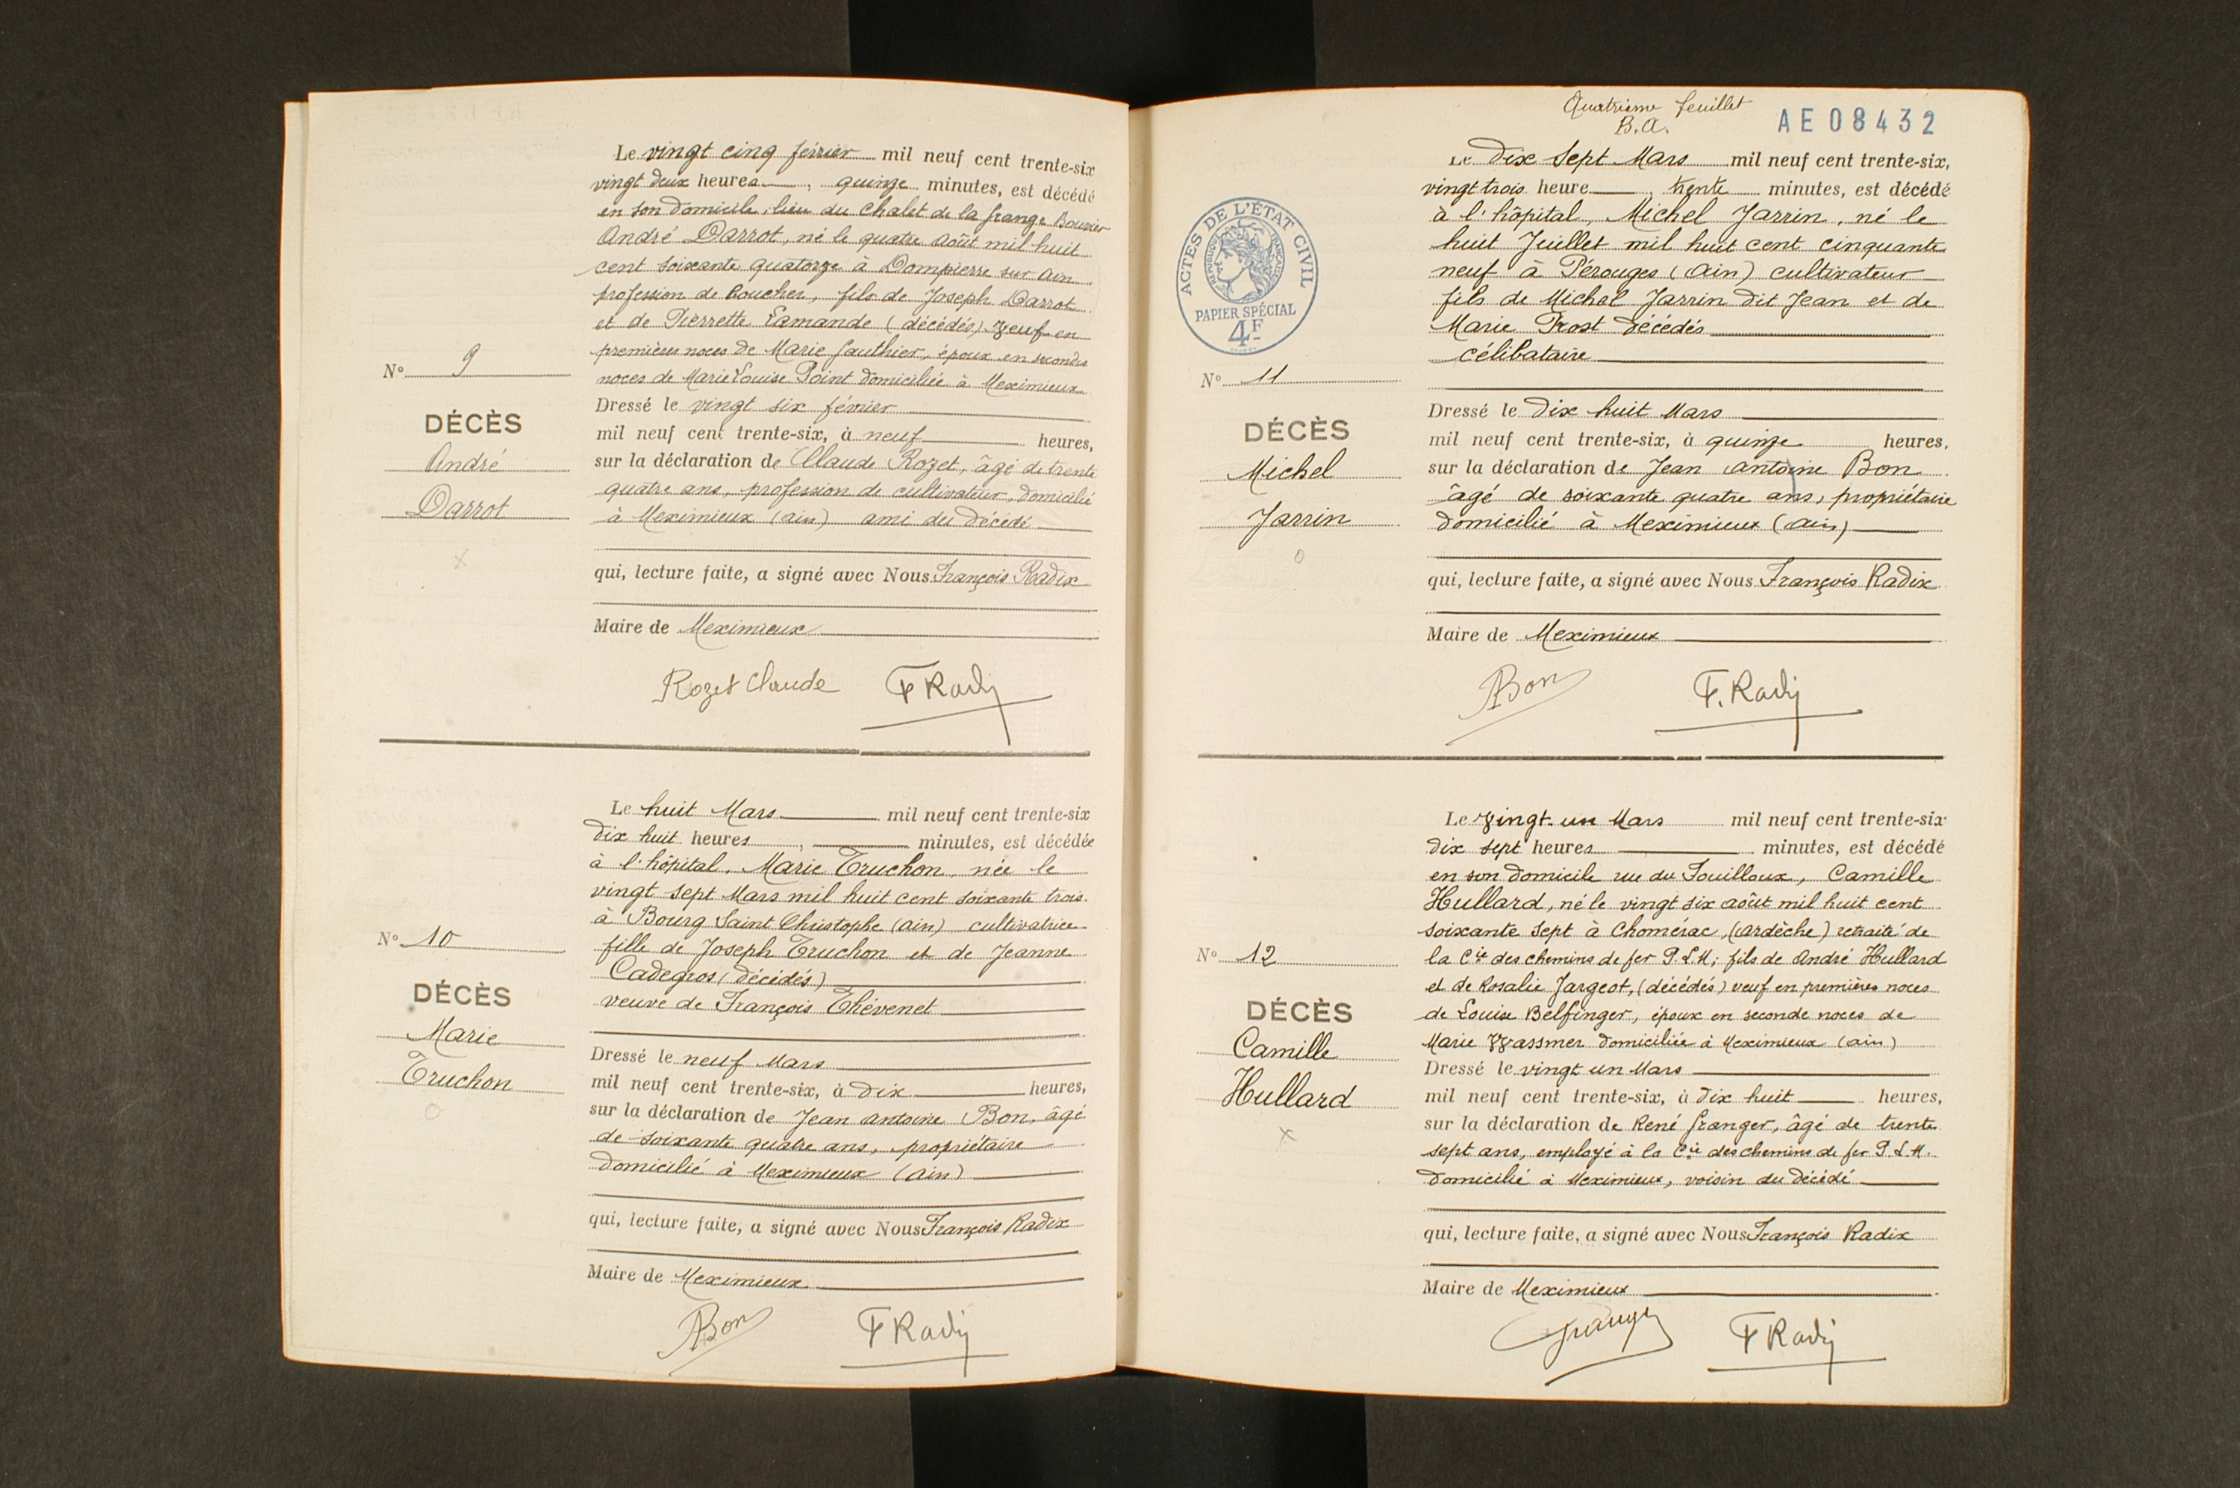 Le vingt cinq février mil neuf cent trente-six
vingt deux heures, quinze minutes, est décédé
en son domicile, lieu du Chalet de la grange Bouvier
André Darrot, né le quatre août mil huit
cent soixante quatorze à Dompierre sur Ain
profession de Boucher, fils de Joseph Darrot
et de Pierrette Lamande (décédés) veuf en
premières noces de Marie Gauthier, époux en secondes
noces de Marie Louise Point domiciliée à Meximieux
Nº 9
DÉCÈS
André
Darrot
x
Dressé le vingt six février
mil neuf cent trente-six, à neuf heures,
sur la déclaration de Claude Rozet, âgé de trente
quatre ans, profession de cultivateur, domicilié
à Meximieux (ain) ami du décédé
qui, lecture faite, a signé avec Nous François Radix
Maire de Meximieux
Rozet Claude F Radix
Le huit Mars mil neuf cent trente-six
dix huit heures, minutes, est décédée
à l'hôpital, Marie Truchon, née le
vingt sept Mars mil huit cent soixante trois
à Bourg Saint Christophe (Ain) cultivatrice
fille de Joseph Truchon et de Jeanne
Cadegros (décédés)
veuve de François Thévenet
Nº 10
DÉCÈS
Marie
Truchon
o
Dressé le neuf Mars
mil neuf cent trente-six, à dix heures,
sur la déclaration de Jean Antoine Bon, âgé
de soixante quatre ans, propriétaire
domicilié à Meximieux (Ain)
qui, lecture faite, a signé avec Nous François Radix
Maire de Meximieux
ABon F Radix
Quatrième feuillet
B.A.
AE08432
Le Dix Sept Mars mil neuf cent trente-six,
vingt trois heure, trente minutes, est décédé
à l'hôpital, Michel Jarrin, né le
huit Juillet mil huit cent cinquante
neuf à Pérouges (Ain) cultivateur
fils de Michel Jarrin dit Jean et de
Marie Prost décédés
célibataire
ACTES DE L'ÉTAT CIVIL
RÉPUBLIQUE FRANÇAISE
PAPIER SPÉCIAL
4F
Nº 11
DÉCÈS
Michel
Jarrin
o
Dressé le dix huit Mars
mil neuf cent trente-six, à quinze heures,
sur la déclaration de Jean Antoine Bon
âgé de soixante quatre ans, propriétaire
domicilié à Meximieux (Ain)
qui, lecture faite, a signé avec Nous François Radix
Maire de Meximieux
ABon F. Radix
Le vingt-un Mars mil neuf cent trente-six
dix sept heures minutes, est décédé
en son domicile rue du Fouilloux, Camille
Hullard, né le vingt six août mil huit cent
soixante sept à Chomérac, (Ardèche) retraité de
la Cie des chemins de fer P.L.M; fils de André Hullard
et de Rosalie Jargeot, (décédés) veuf en premières noces
de Louise Belfinger, époux en seconde noces de
Marie Wassmer domiciliée à Meximieux (ain)
Nº 12
DÉCÈS
Camille
Hullard
x
Dressé le vingt un Mars
mil neuf cent trente-six, à dix huit heures,
sur la déclaration de René Granger, âgé de trente
sept ans, employé à la Cie des chemins de fer P.L.M.
domicilié à Meximieux, voisin du décédé
qui, lecture faite, a signé avec Nous François Radix
Maire de Meximieux
Granger F Radix